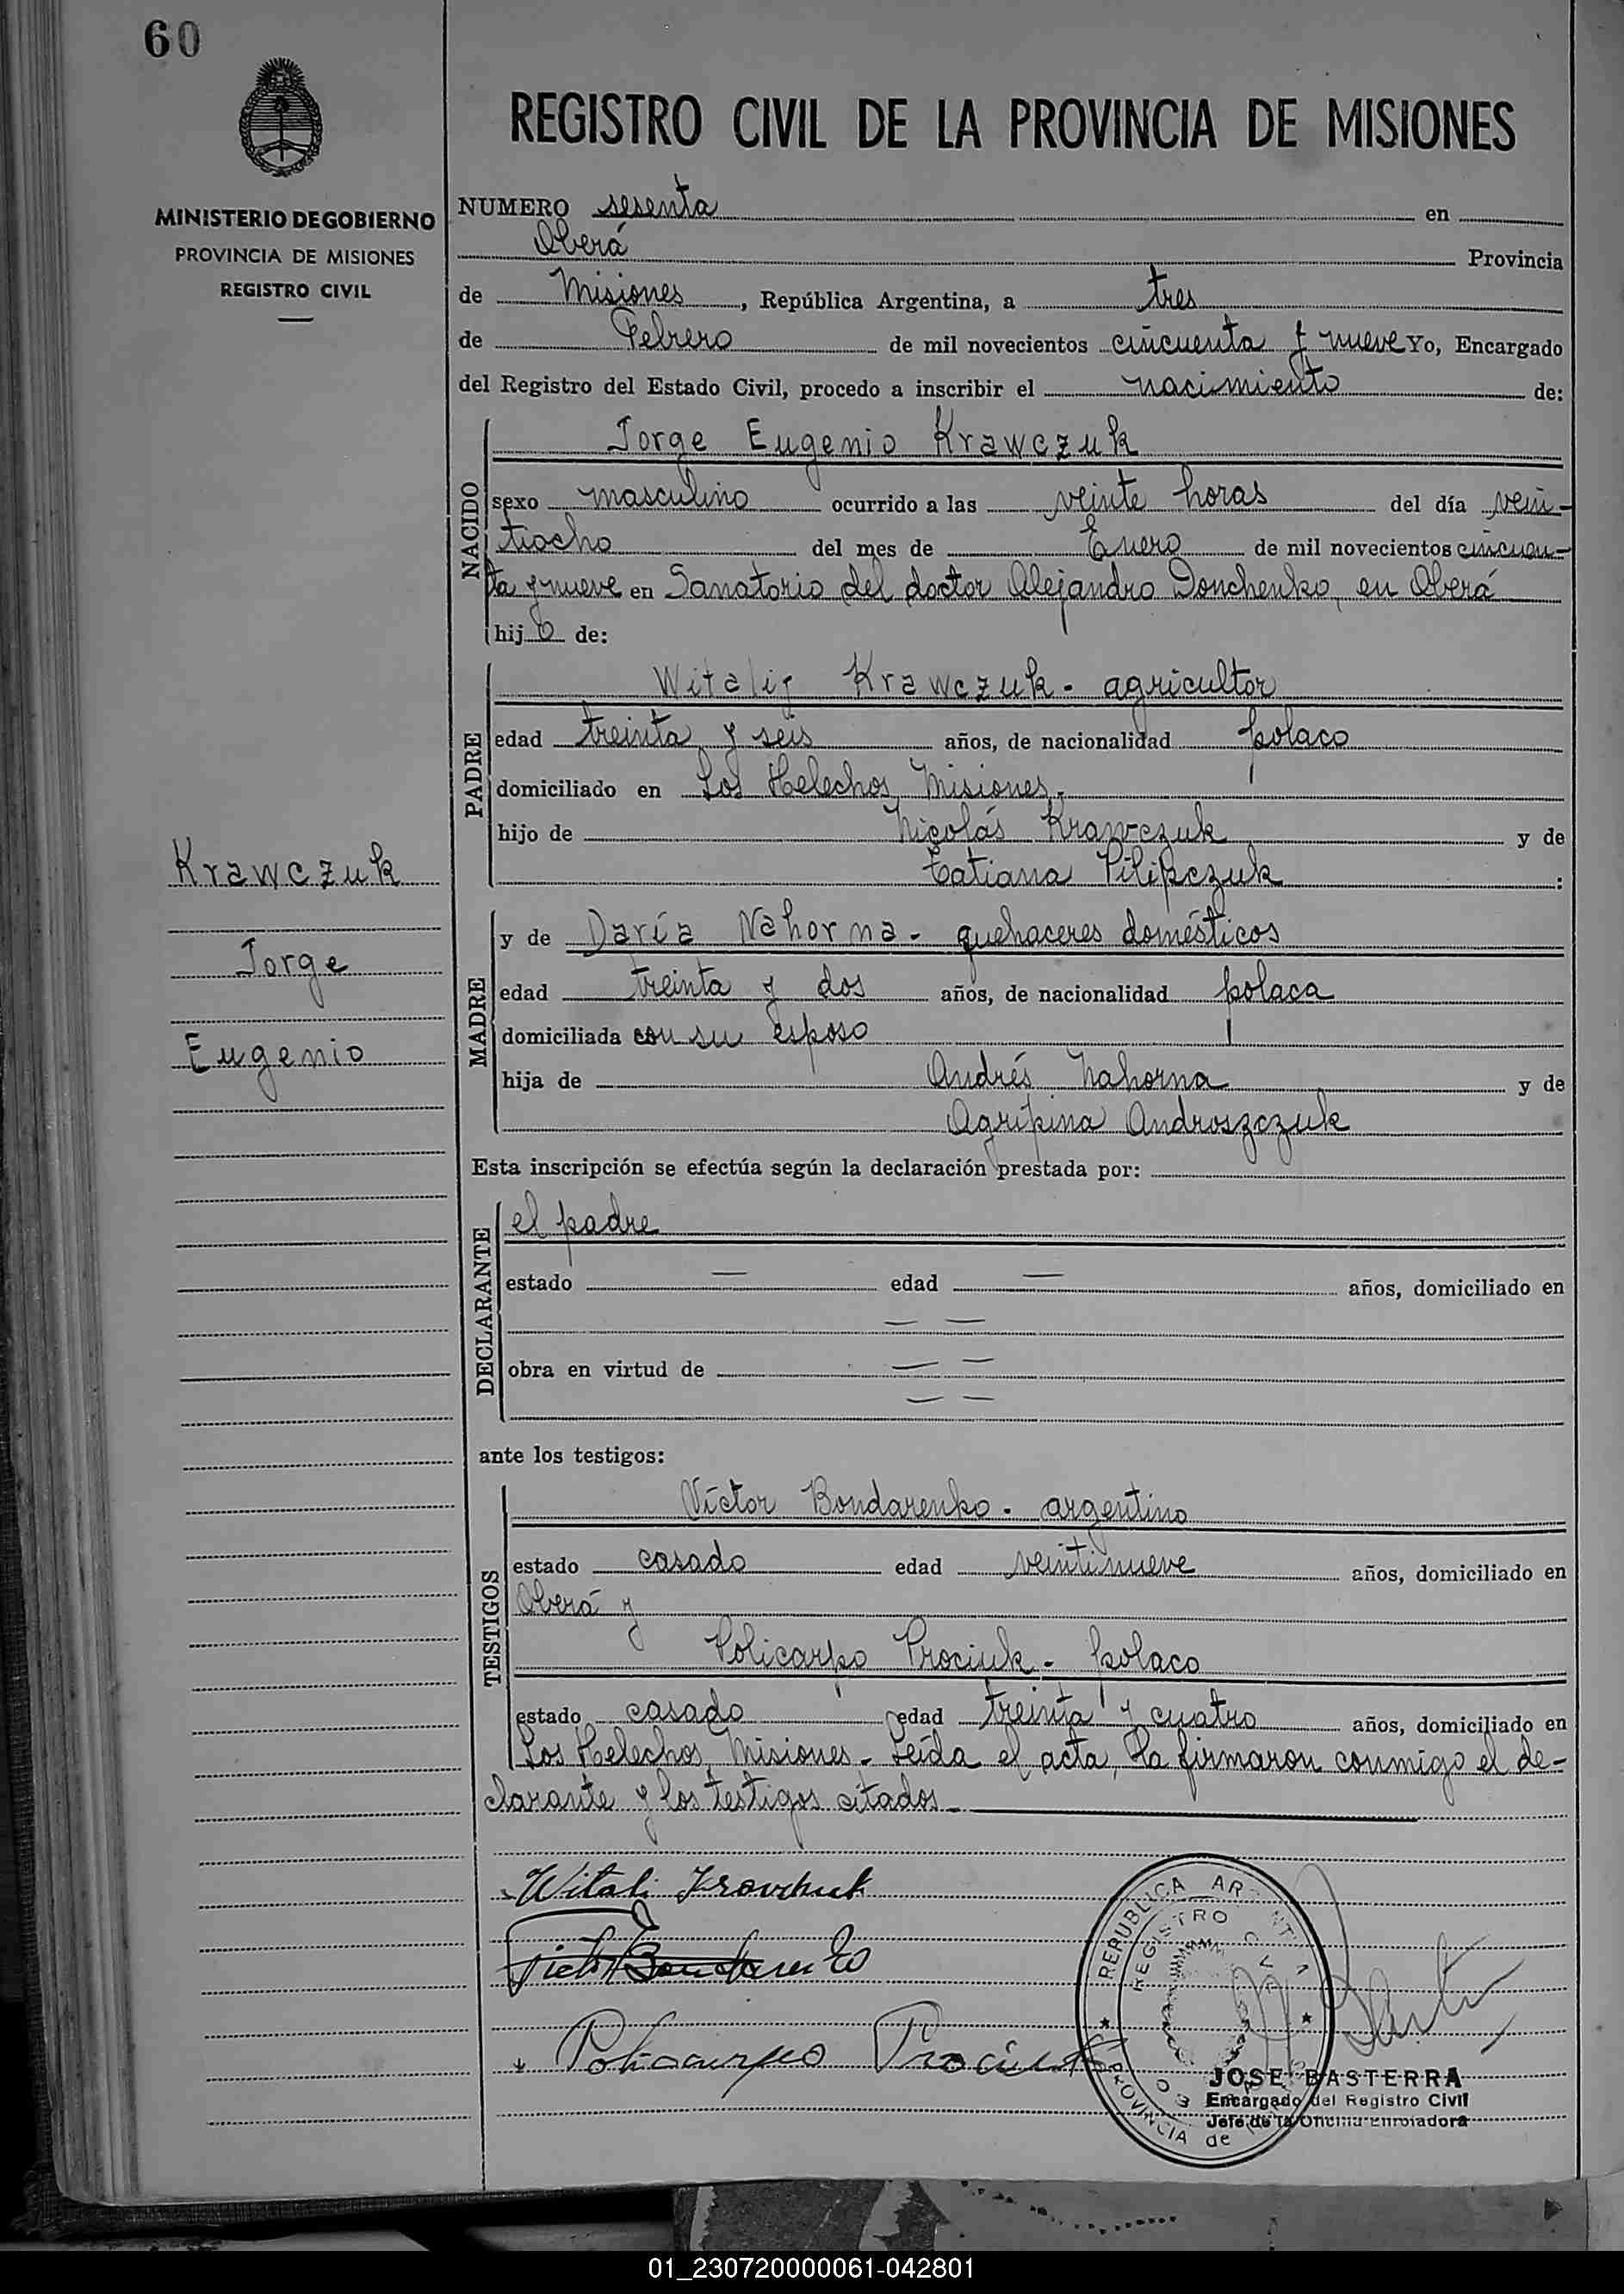 60
MINISTERIO DE GOBIERNO
PROVINCIA DE MISIONES
REGISTRO CIVIL
REGISTRO CIVIL DE LA PROVINCIA DE MISIONES
NUMERO sesenta en
Oberá Provincia
de Misiones, República Argentina, a tres
de Febrero de mil novecientos cincuenta y nueve Yo, Encargado
del Registro del Estado Civil, procedo a inscribir el nacimiento de:
NACIDO
Jorge Eugenio Krawczuk
sexo masculino ocurrido a las veinte horas del día vein-
tiocho del mes de Enero de mil novecientos cincuen-
ta y nueve en Sanatorio del doctor Alejandro Donchenko, en Oberá
hijo de:
PADRE
Witalij Krawczuk - agricultor
edad treinta y seis años, de nacionalidad polaco
domiciliado en Los Helechos, Misiones,
hijo de Nicolás Krawczuk y de
Tatiana Pilipczuk :
MADRE
y de Daría Nahorna - quehaceres domésticos
edad treinta y dos años, de nacionalidad polaca
domiciliada con su esposo
hija de Andrés Nahorna y de
Agripina Androszczuk
Krawczuk
Jorge
Eugenio
Esta inscripción se efectúa según la declaración prestada por:
DECLARANTE
el padre
estado — edad — años, domiciliado en
— —
obra en virtud de — —
— —
ante los testigos:
TESTIGOS
Víctor Bondarenko - argentino
estado casado edad veintinueve años, domiciliado en
Oberá y
Policarpo Prociuk - polaco
estado casado edad treinta y cuatro años, domiciliado en
Los Helechos, Misiones - Leída el acta, la firmaron conmigo el de-
clarante y los testigos citados -
Witali Krawchuk
Victor Bondarenko
Policarpo Prociuk
REPUBLICA ARGENTINA
REGISTRO CIVIL
PROVINCIA de
JOSE BASTERRA
Encargado del Registro Civil
Jefe de la Oficina Enroladora
01_230720000061-042801